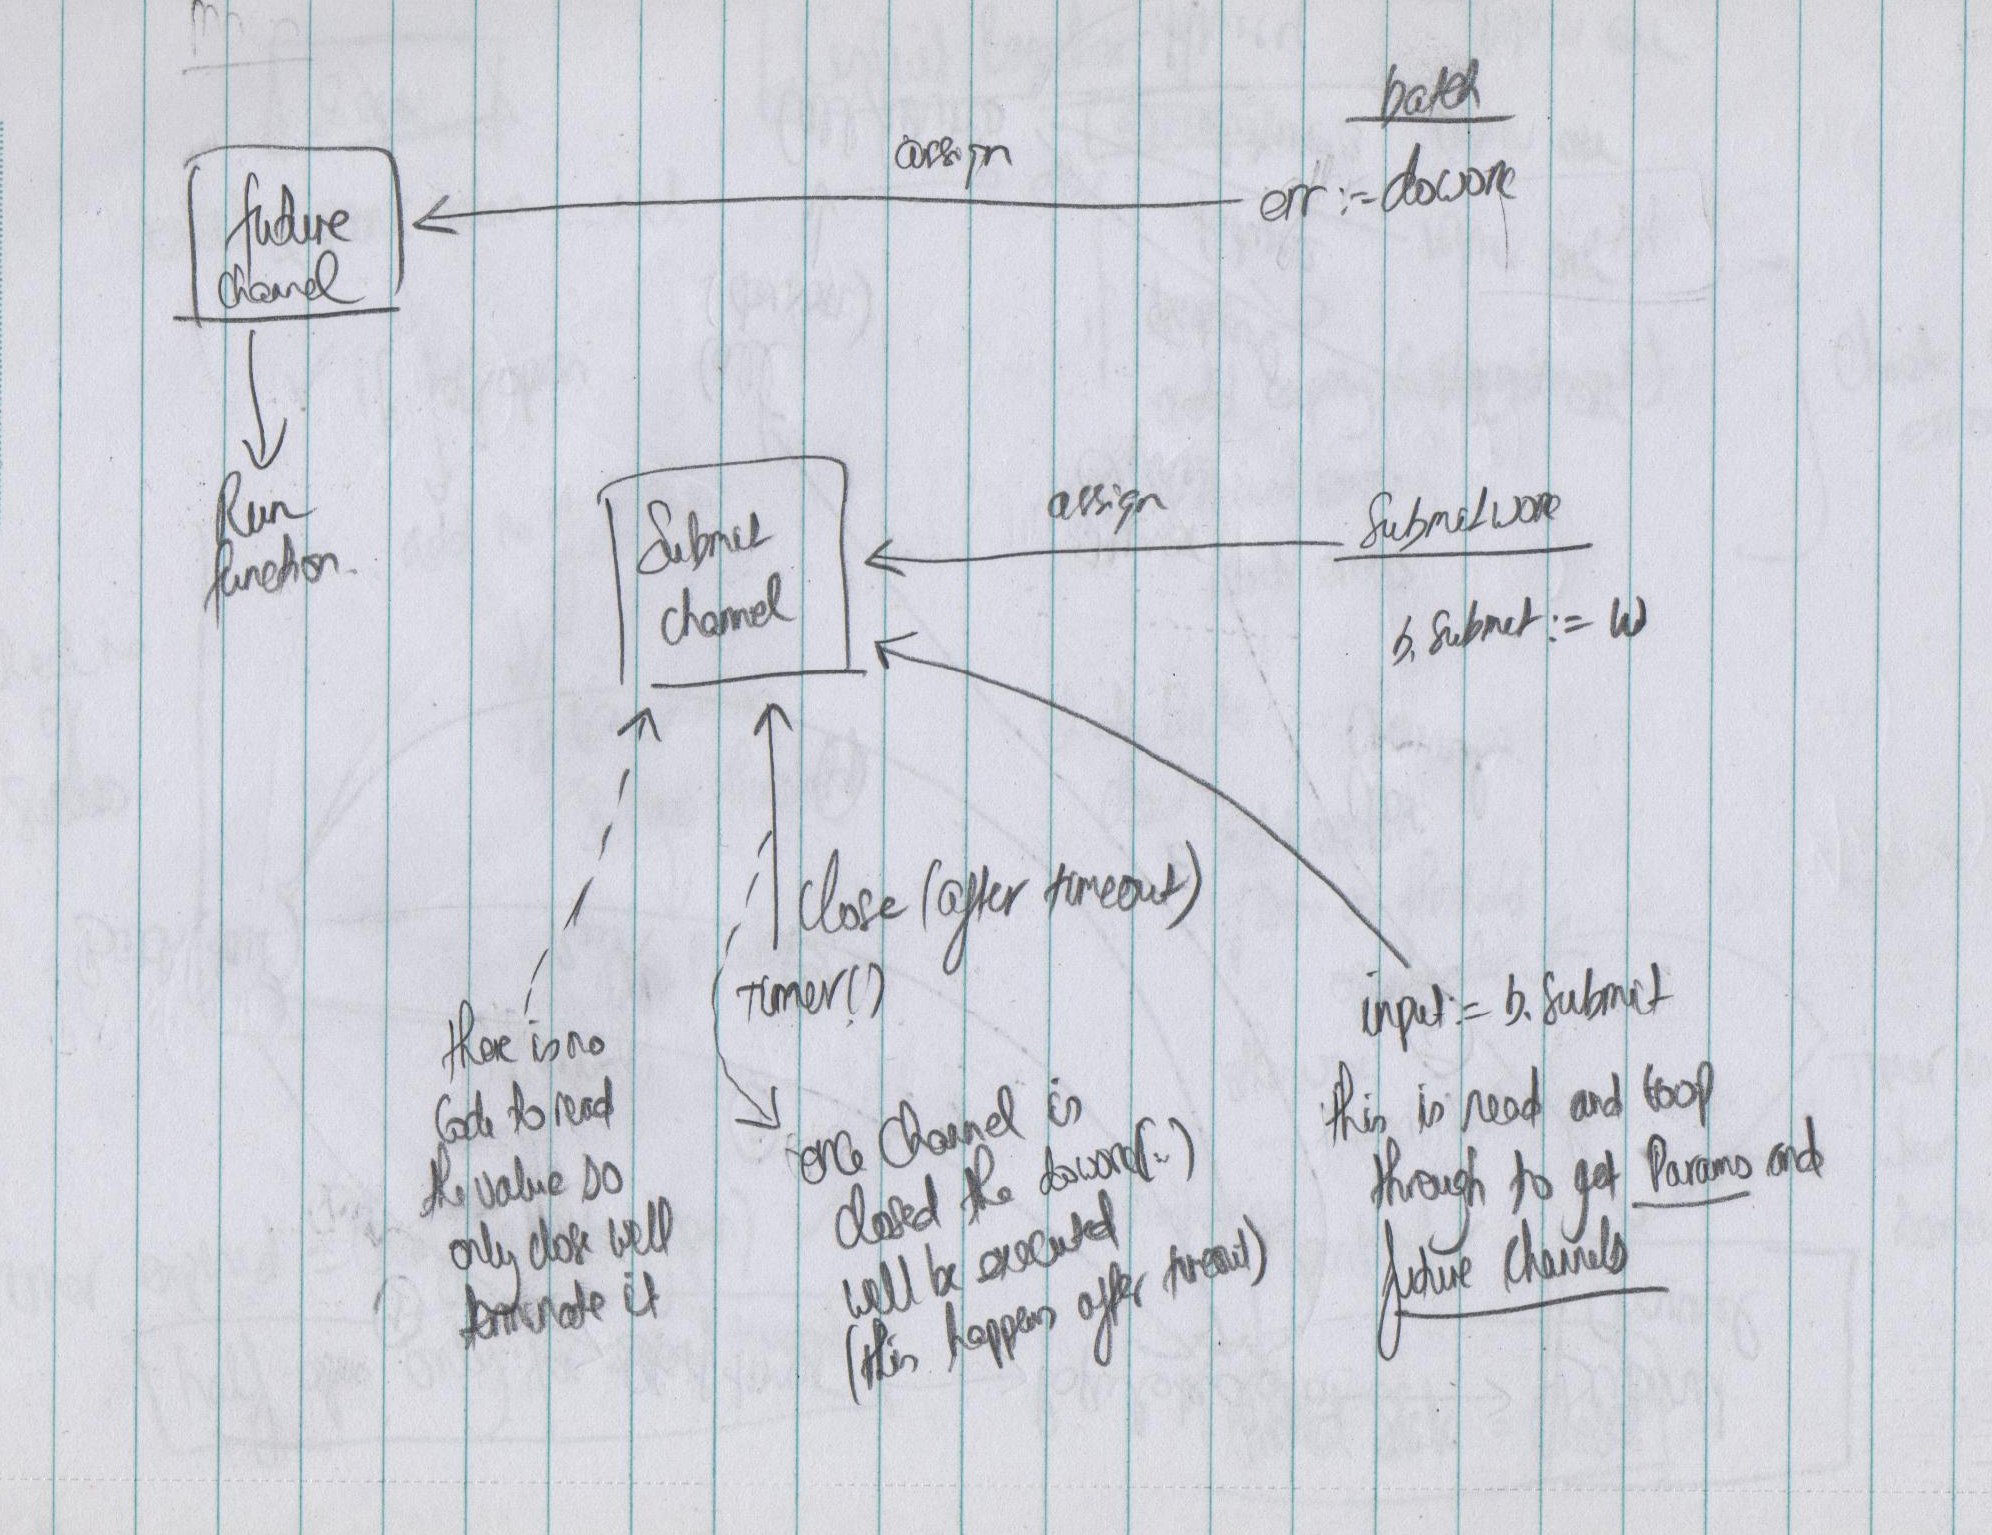 batch
assign
err := dowork
future
channel
Run
function.
assign
Submitwork
Submit
channel
b. Submit := W
Close (after timeout)
timer()
input := b. Submit
there is no
Code to read
the value so
only close will
terminate it
once channel is
closed the dowork(..)
will be executed
(this happens after timeout)
this is read and loop
through to get Params and
future channels